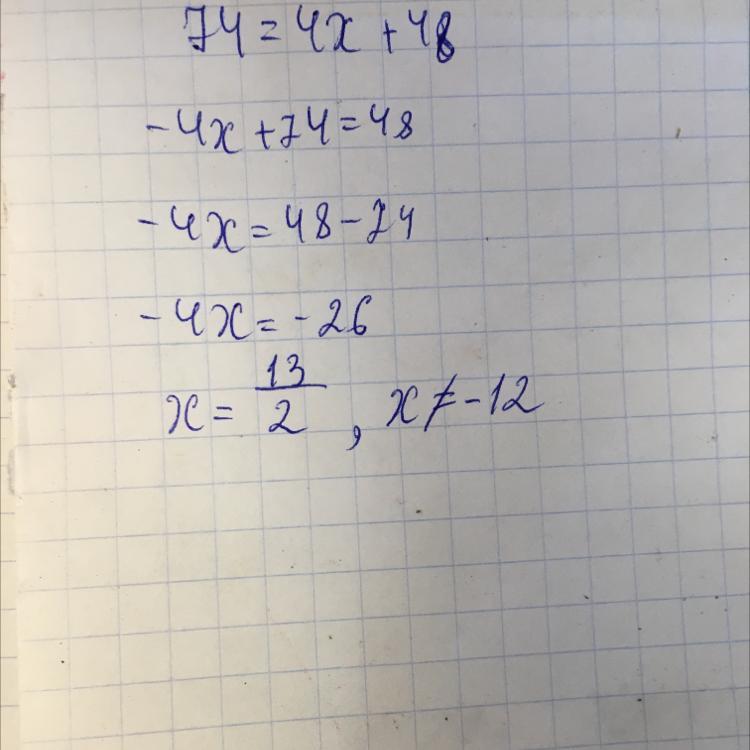 74 = 4x + 48
-4x + 74 = 48
-4x = 48 - 74
-4x = -26
x = 13/2 , x ≠ -12